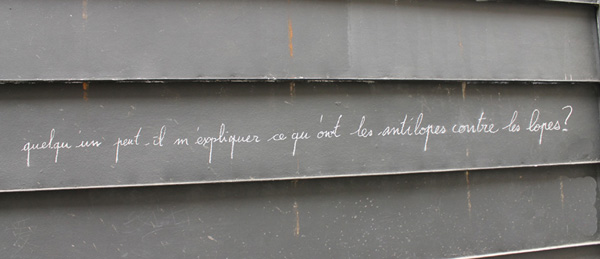 quelqu'un peut-il m'expliquer ce qu'ont les antilopes contre les lopes?